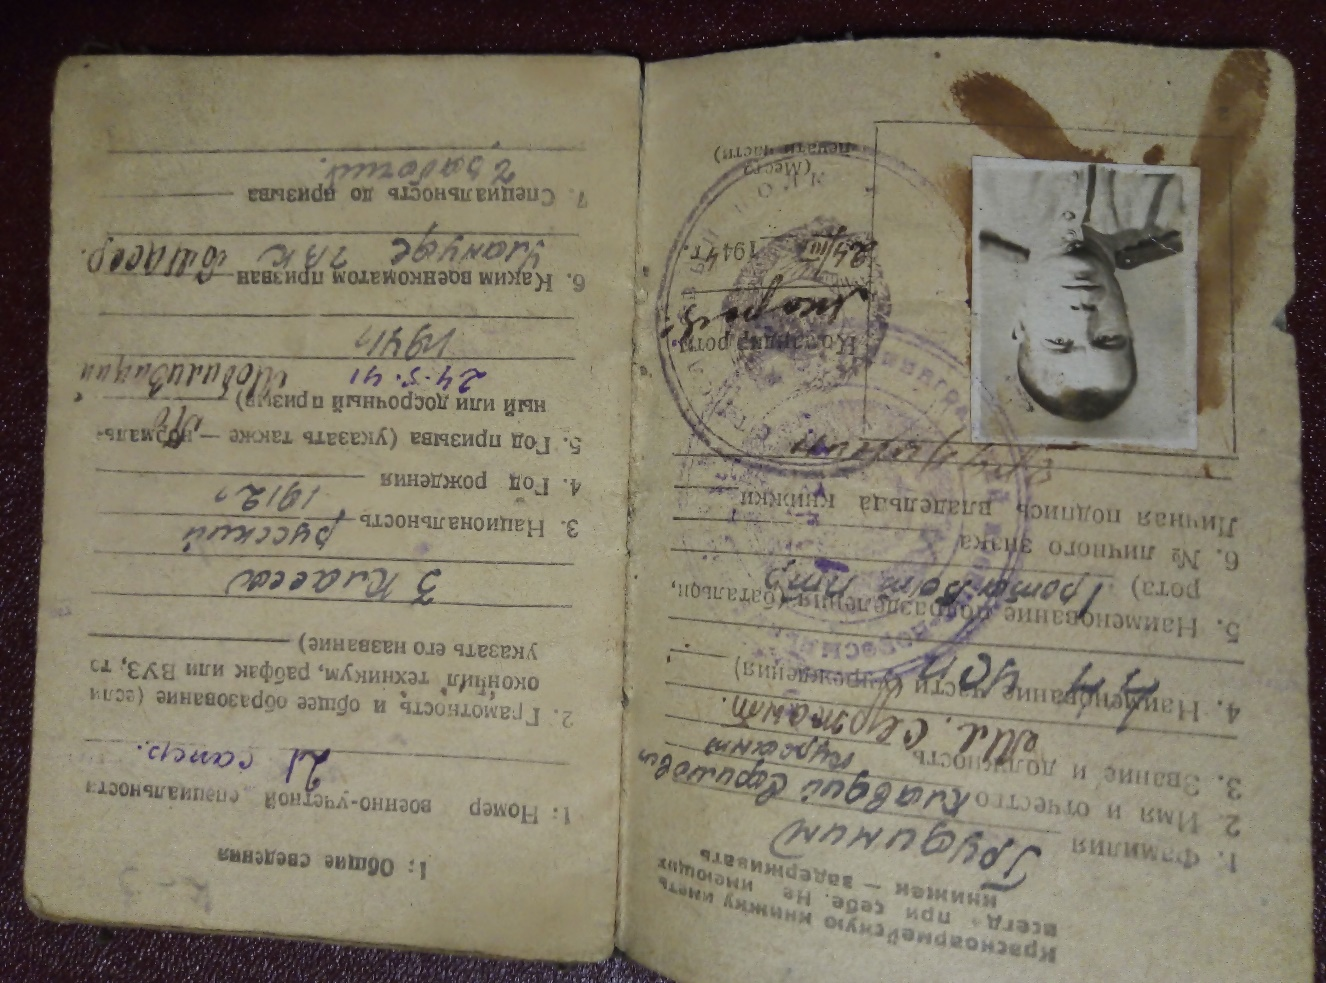 Красноармейскую книжку иметь
всегда при себе. Не имеющих
книжек — задерживать
1. Фамилия Грудинин
2. Имя и отчество Клавдий
3. Звание и должность Мл. Сержант.
4. Наименование части (учреждения)
5. Наименование подразделения (батальон,
рота) рота ПТР
6. № личного знака
Личная подпись владельца книжки
Командир роты
1944 г.
(Место
печати части)
1. Общие сведения
1. Номер военно-учетной специальности
21 сапер.
2. Грамотность и общее образование (если
окончил техникум, рабфак или ВУЗ, то
указать его название)
3 класса
3. Национальность русский
4. Год рождения 1912 г
5. Год призыва (указать также — нормаль-
ный или досрочный призыв) По
Мобилизации
1941 г
6. Каким военкоматом призван
7. Специальность до призыва